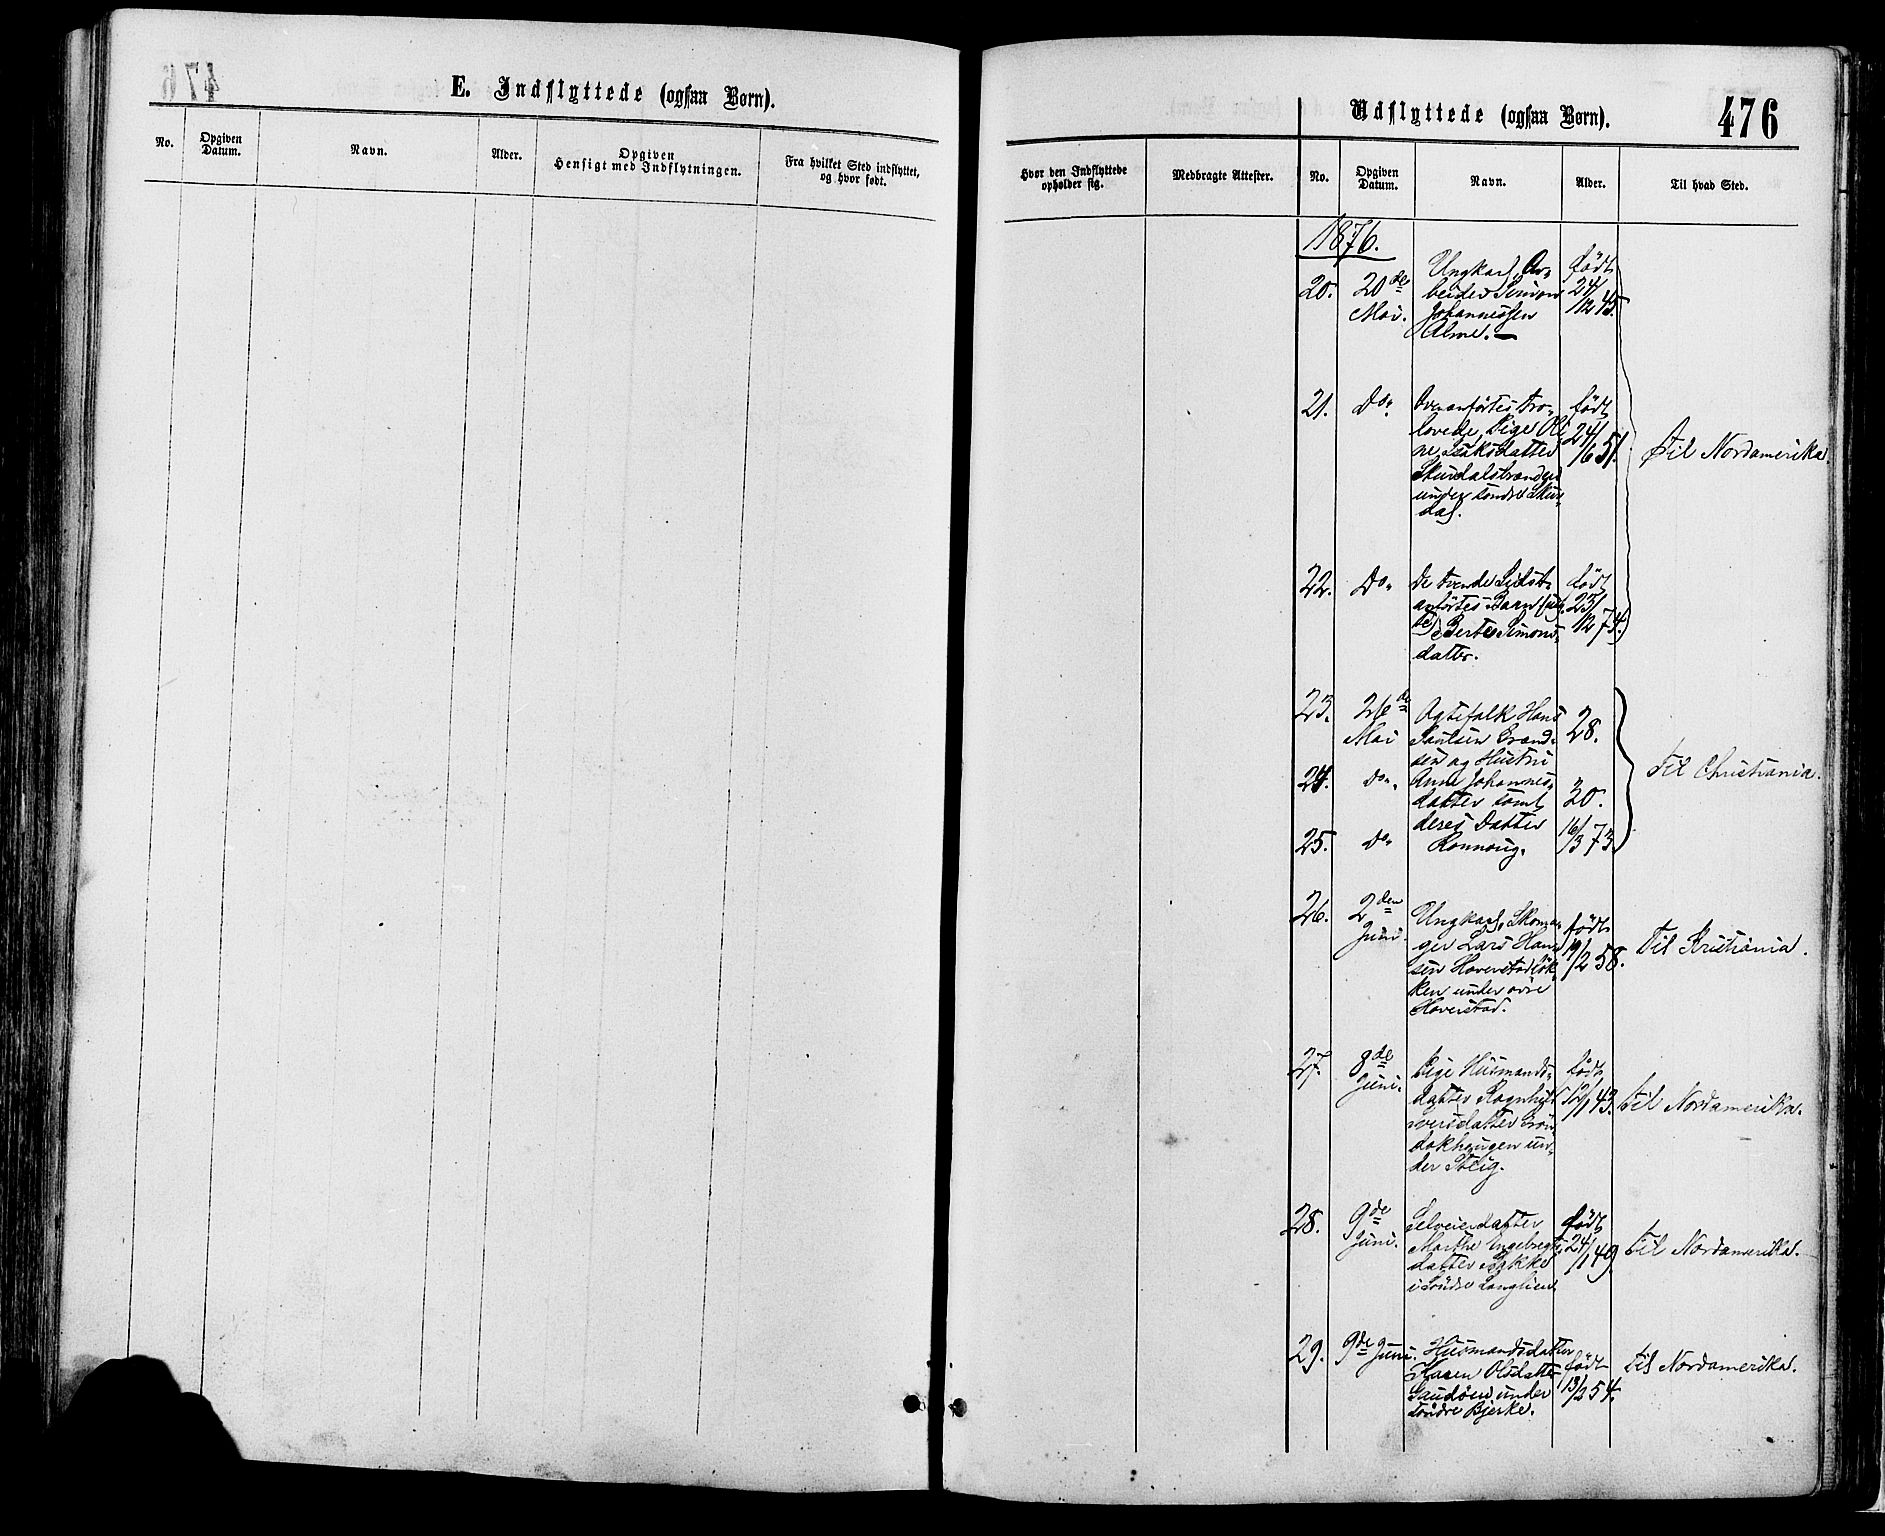 E. Indflyttede (ogsaa Børn).
No.
Opgiven
Datum.
Navn.
Alder.
Opgiven
Hensigt med Indflytningen.
Fra hvilket Sted indflyttet,
og hvor født.
Udflyttede (ogsaa Børn).
476
Hvor den Indflyttede
opholder sig.
Medbragte Attester.
No.
Opgiven
Datum.
Navn.
Alder.
Til hvad Sted.
1876.
20.
20de
Mai.
Ungkarl, Ar-
beider Simon
Johannessen
Alme.
født
24/12 45.
21.
Do.
Ovenanførtes Tro-
lovede, Pige Oli
ne Isaksdatter
under søndre Skur-
dal.
født
24/6 51.
Til Nordamerika.
22.
Do.
De tvende Sidst-
anførtes Barn
Berte Simons-
datter.
født
23/12 74.
23.
26de
Mai
Ægtefolk Hans
Paulsen
og Hustru
28.
24.
Do.
Anne Johannes-
datter samt
20.
25.
Do.
deres Datter
Ronnoug.
16/3 73.
Til Christiania.
26.
2den
Juni.
Ungkarl, Skoma-
ger Lars Han-
sen Haverstadløk-
ken under øvre
Haverstad.
født
19/2 58.
Til Kristiania.
27.
8de
Juni.
Pige Husmands-
datter Ragnhild
Iversdatter
un-
der Solig.
født
12/1 43.
Til Nordamerika.
28.
9de
Juni.
Selveierdatter
Marthe Engebregts-
datter Bakke
i Søndre Langlien
født
24/1 49.
Til Nordamerika.
29.
9de Juni.
Husmandsdatter
Karen Olsdatter
under
søndre Bjerke.
født
13/2 54.
Til Nordamerika.